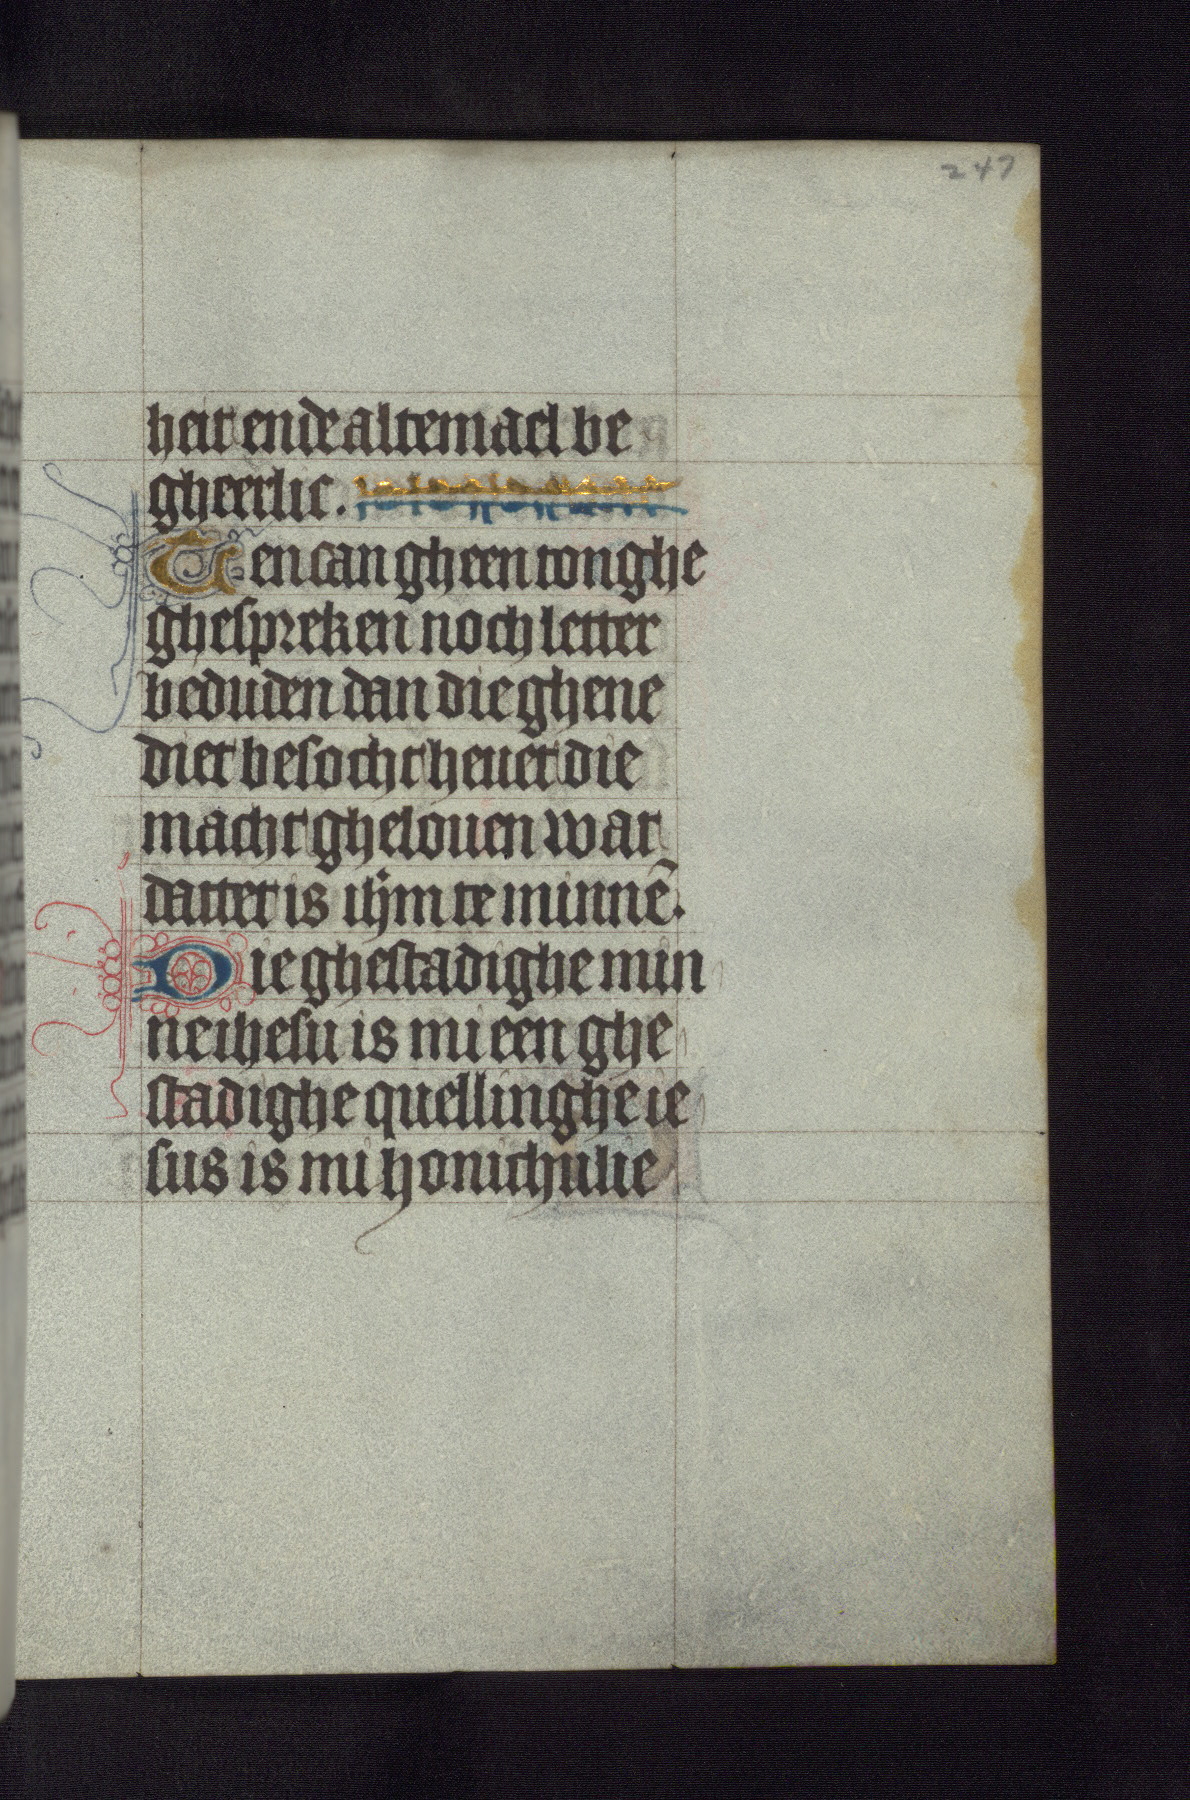 247
heit ende altemael be
gheerlic.
Ten can gheen tonghe
ghespreken noch letter
beduden dan die ghene
diet besocht heuet die
macht ghelouen wat
dattet is ihm te minnē.
Die ghestadighe min
ne ihesu is mi een ghe
stadighe quellinghe ie
sus is mi honichulie